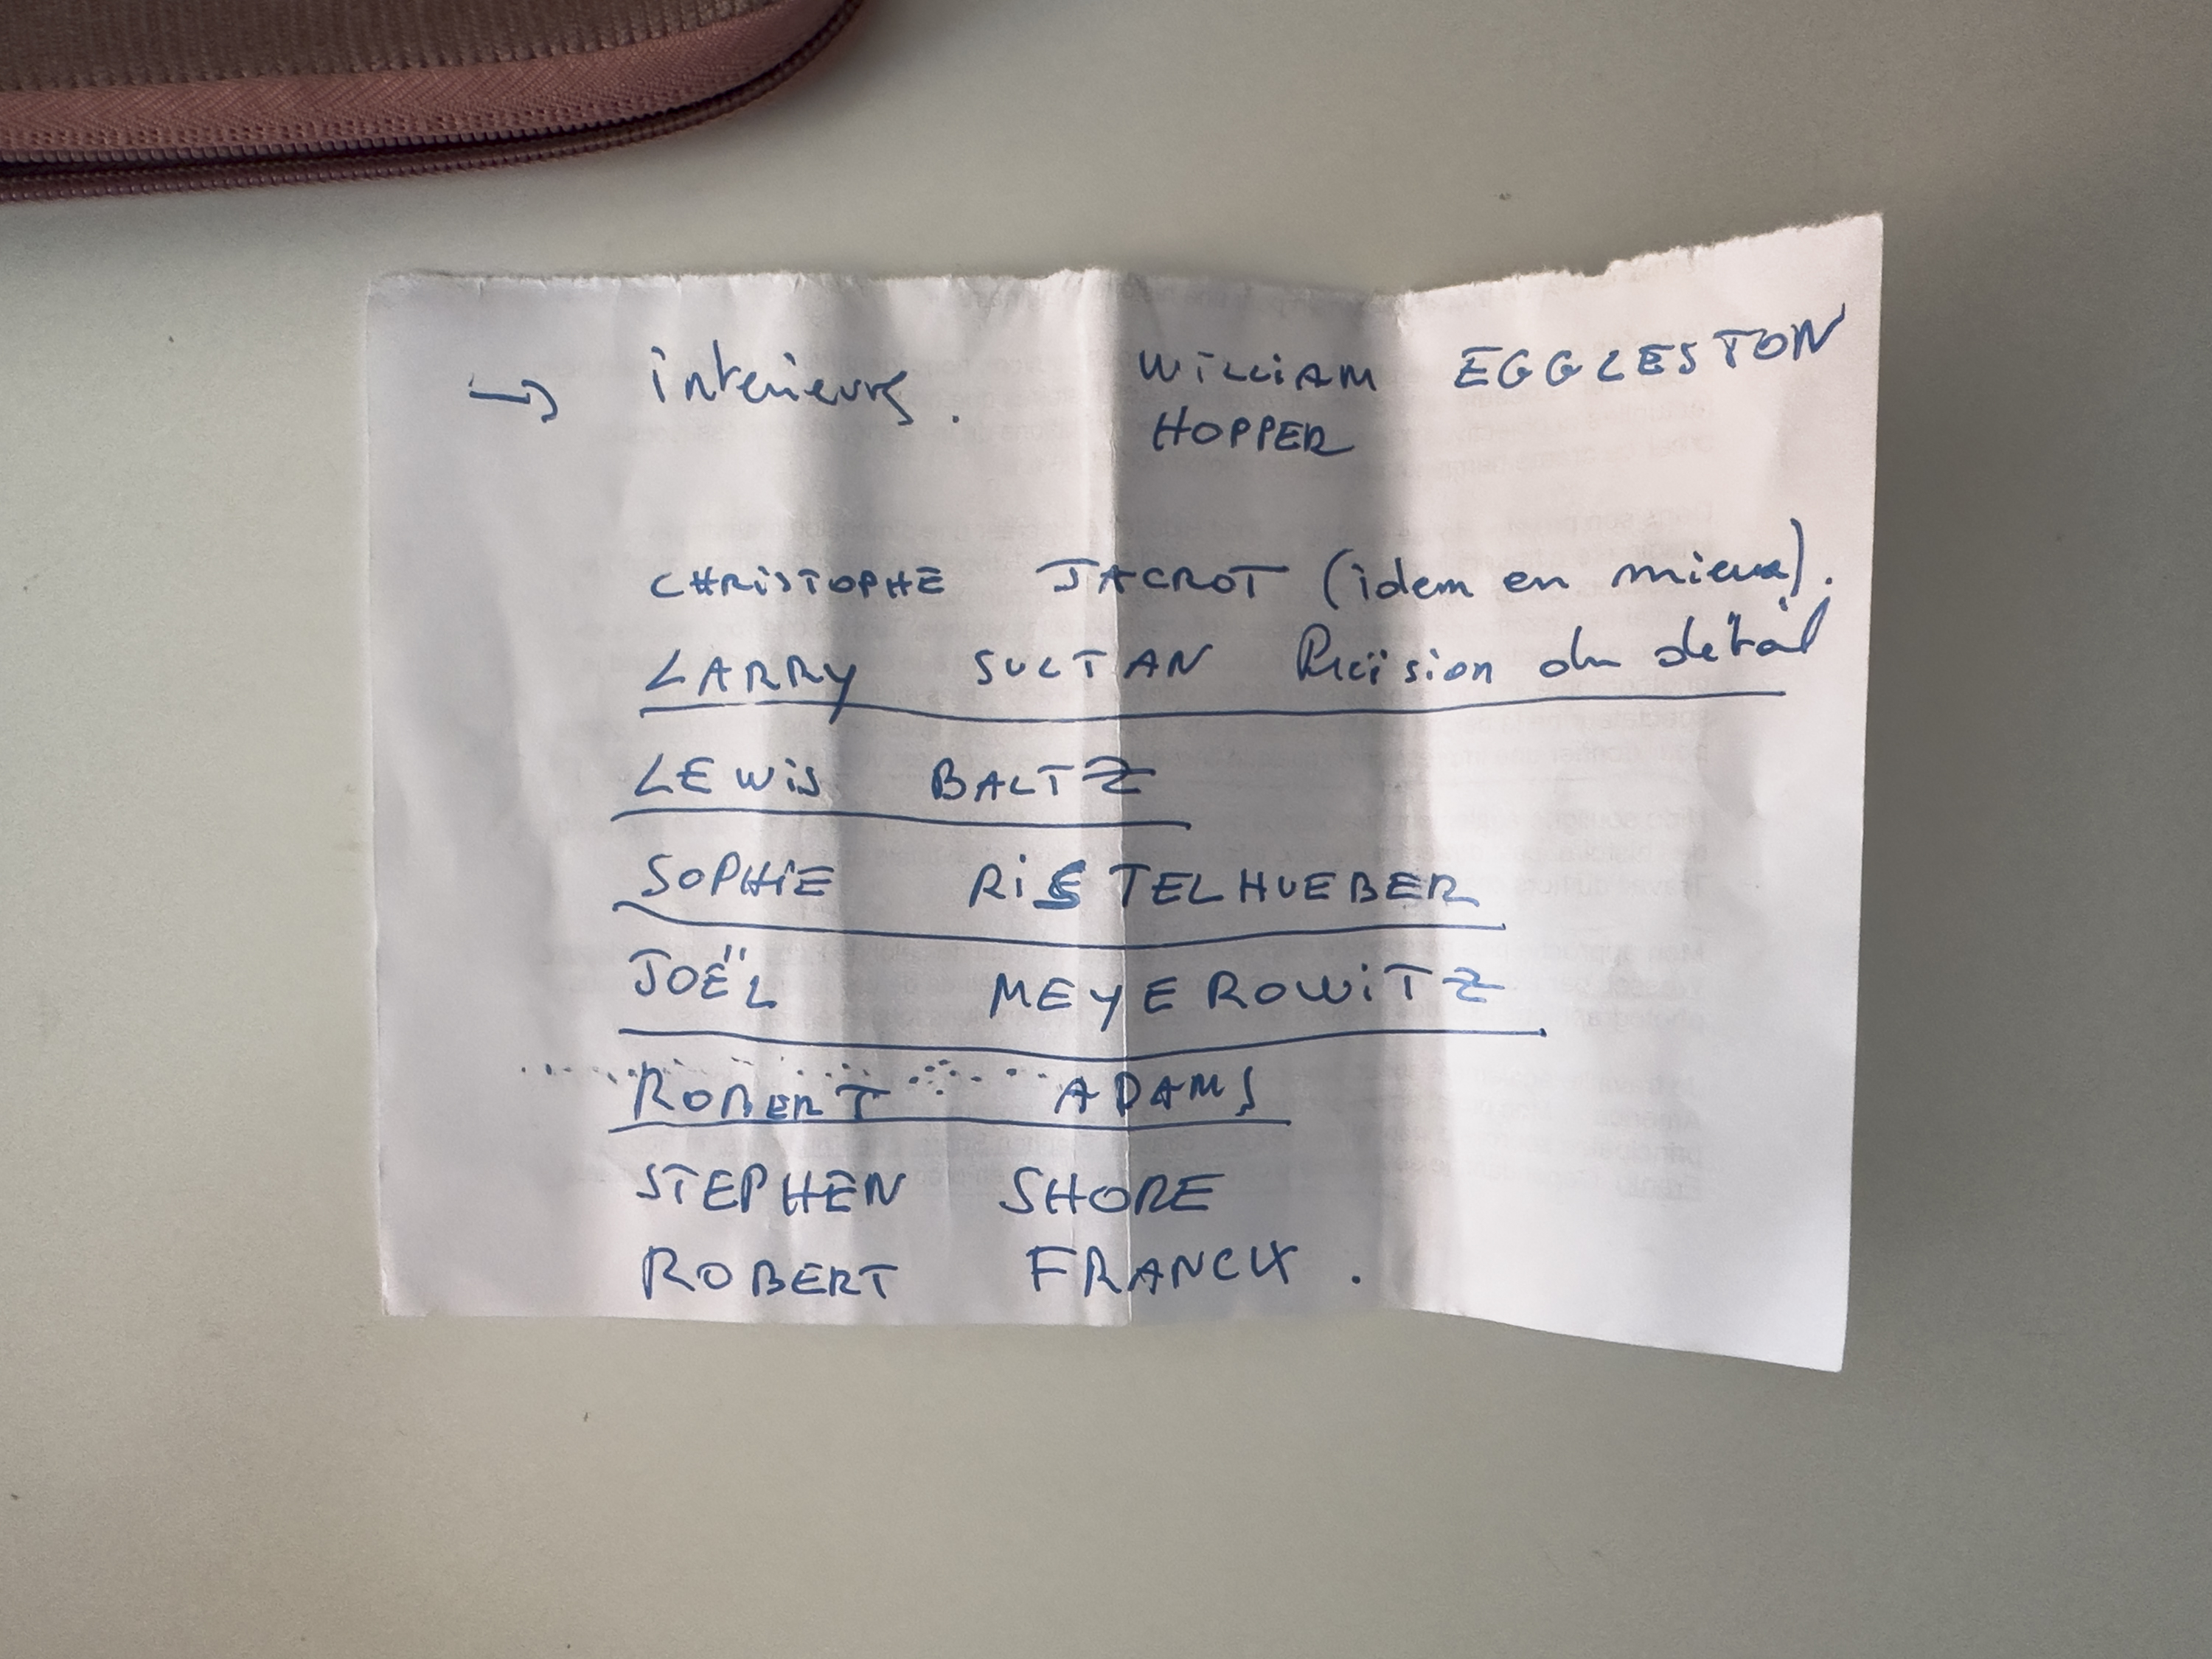 → intérieurs. WiLLiAM EGGLESTON
HOPPER
CHRiSTOPHE JACROT (idem en mieux).
LARRY SULTAN Précision du détail
LEWiS BALTZ
SOPHiE RiSTELHUEBER
JOËL MEYEROWiTZ
ROBERT ADAMS
STEPHEN SHORE
ROBERT FRANCK.